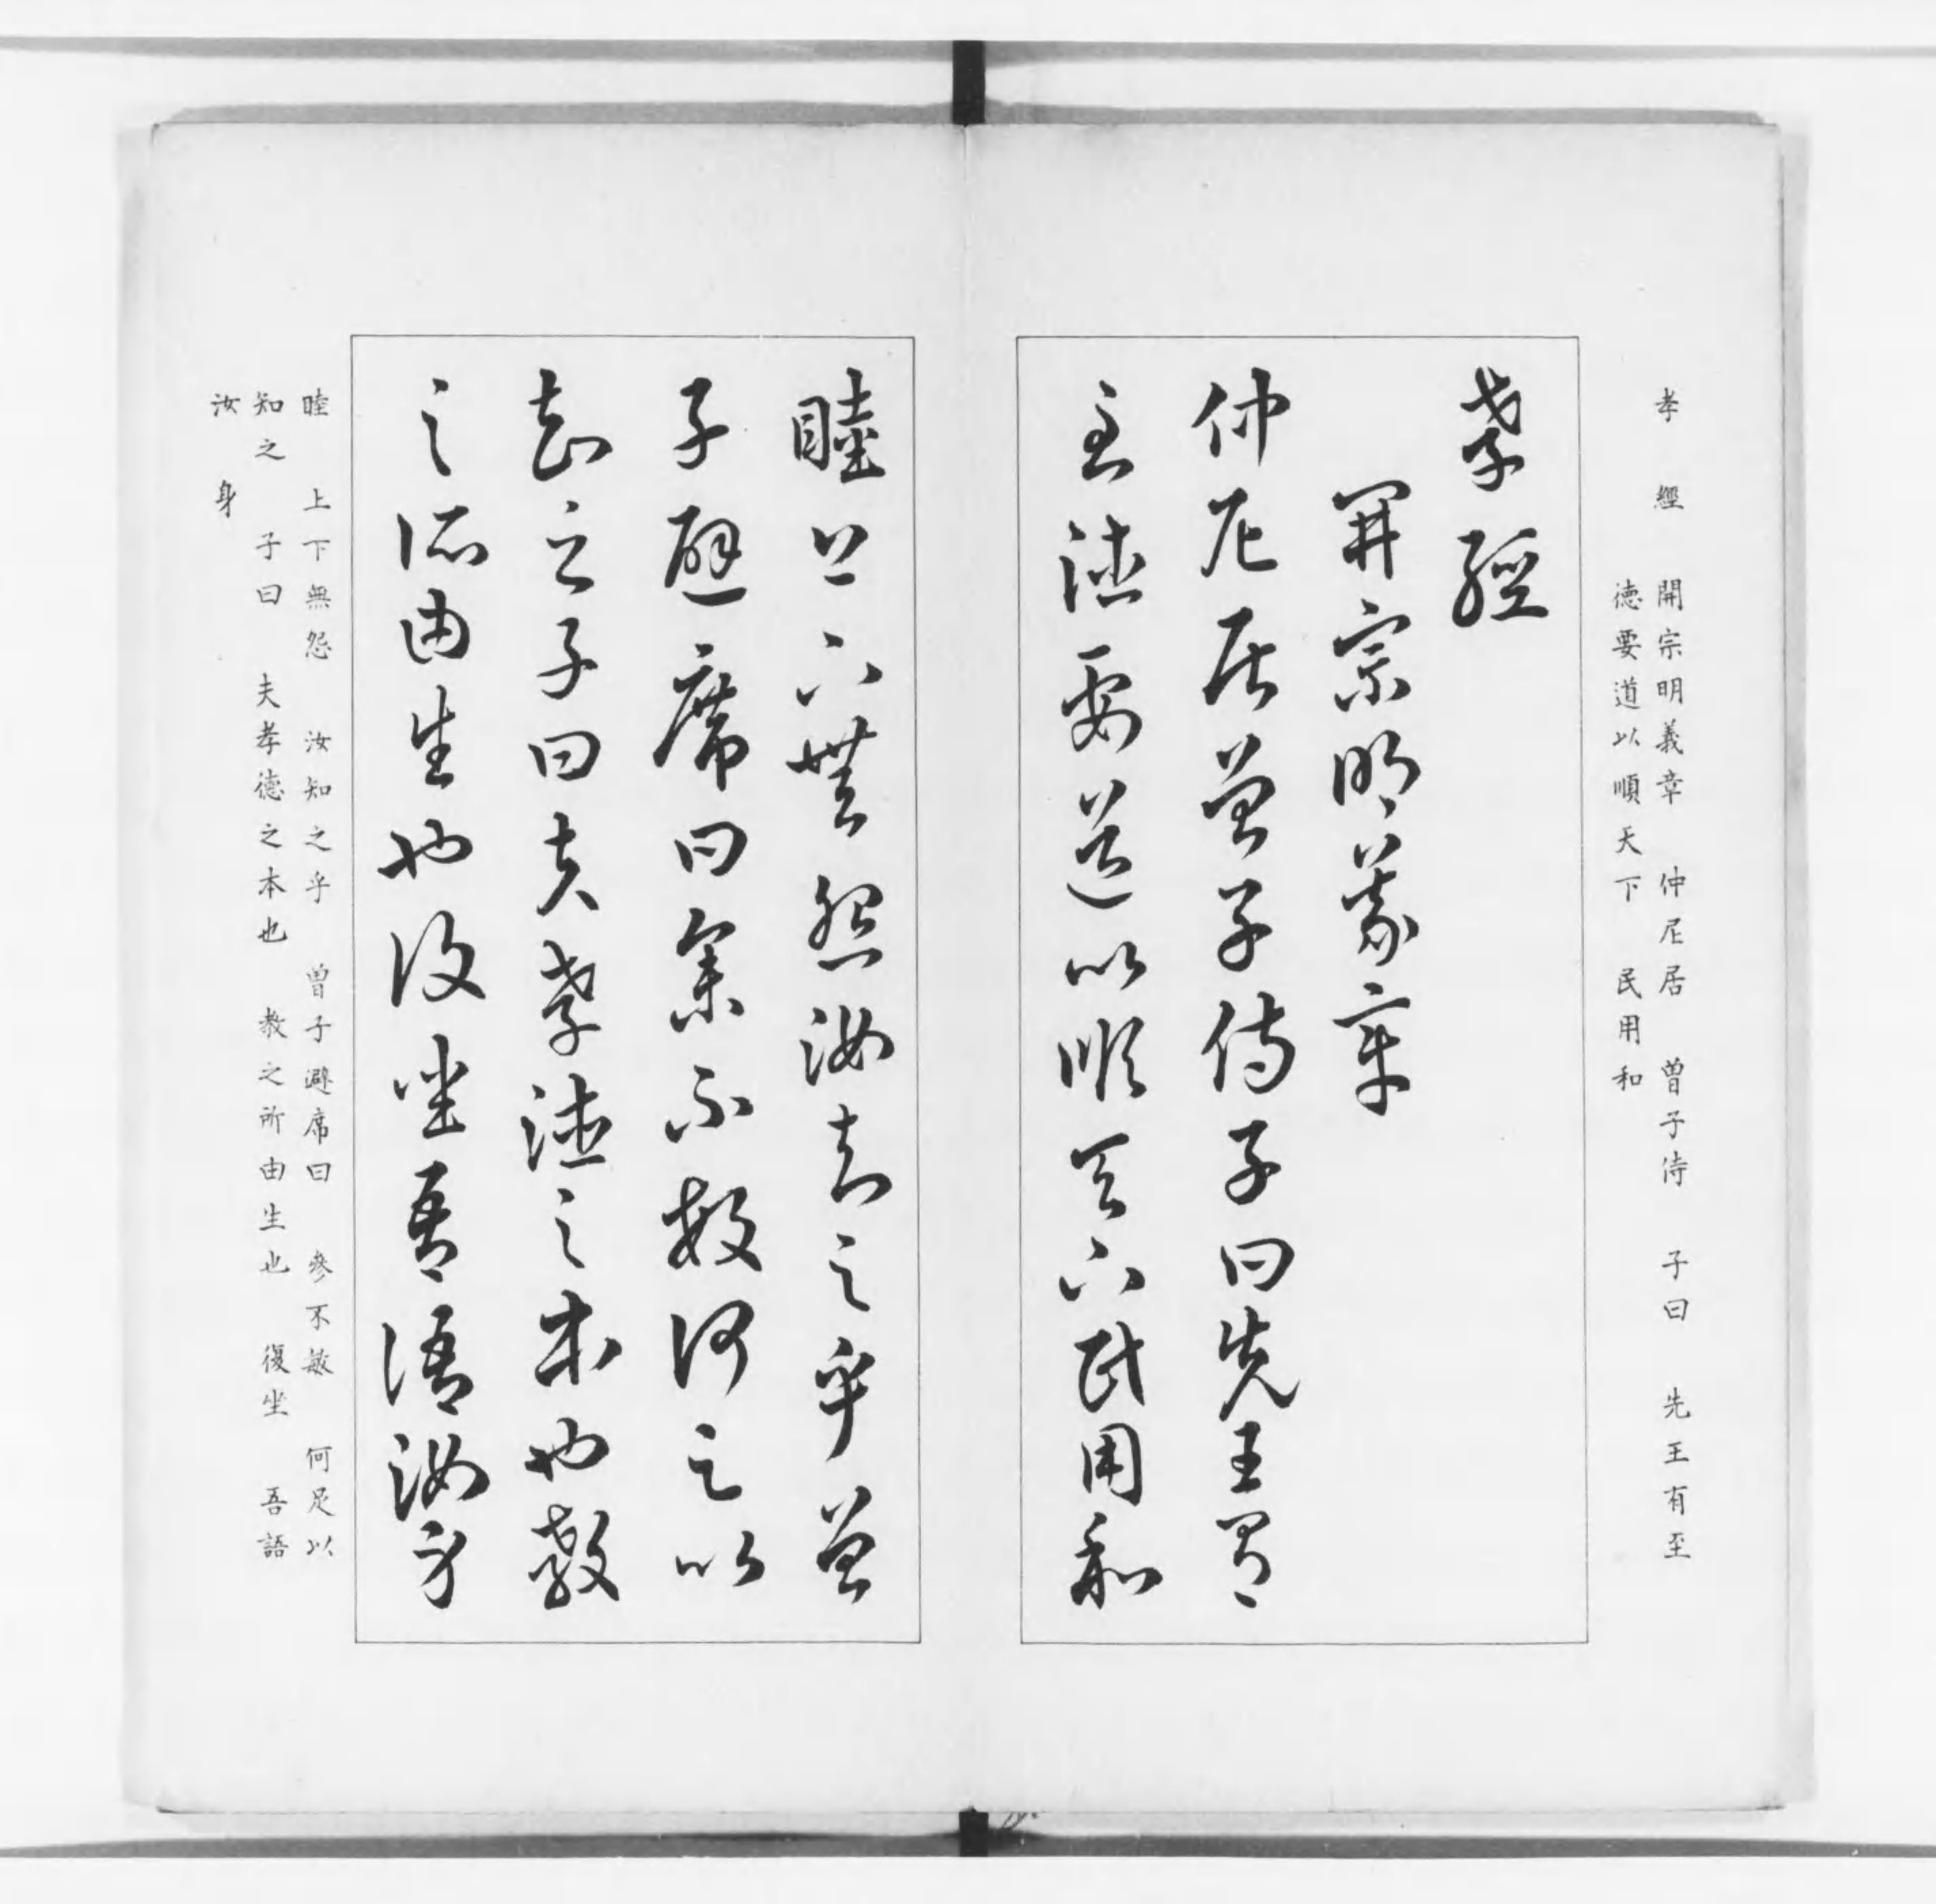 孝 經 開宗明義章 仲尼居 曽子侍 子曰 先王有至
徳要道以順天下 民用和
孝經
開宗明義章
仲尼居曾子侍子曰先王有
至德要道以順天下民用和
睦上下無怨汝知之乎曾
子避席曰參不敏何足以
知之子曰夫孝德之本也教
之所由生也復坐吾語汝身
睦 上下無怨 汝知之乎 曽子避席曰 參不敏 何足以
知之 子曰 夫孝徳之本也 教之所由生也 復坐 吾語
汝 身